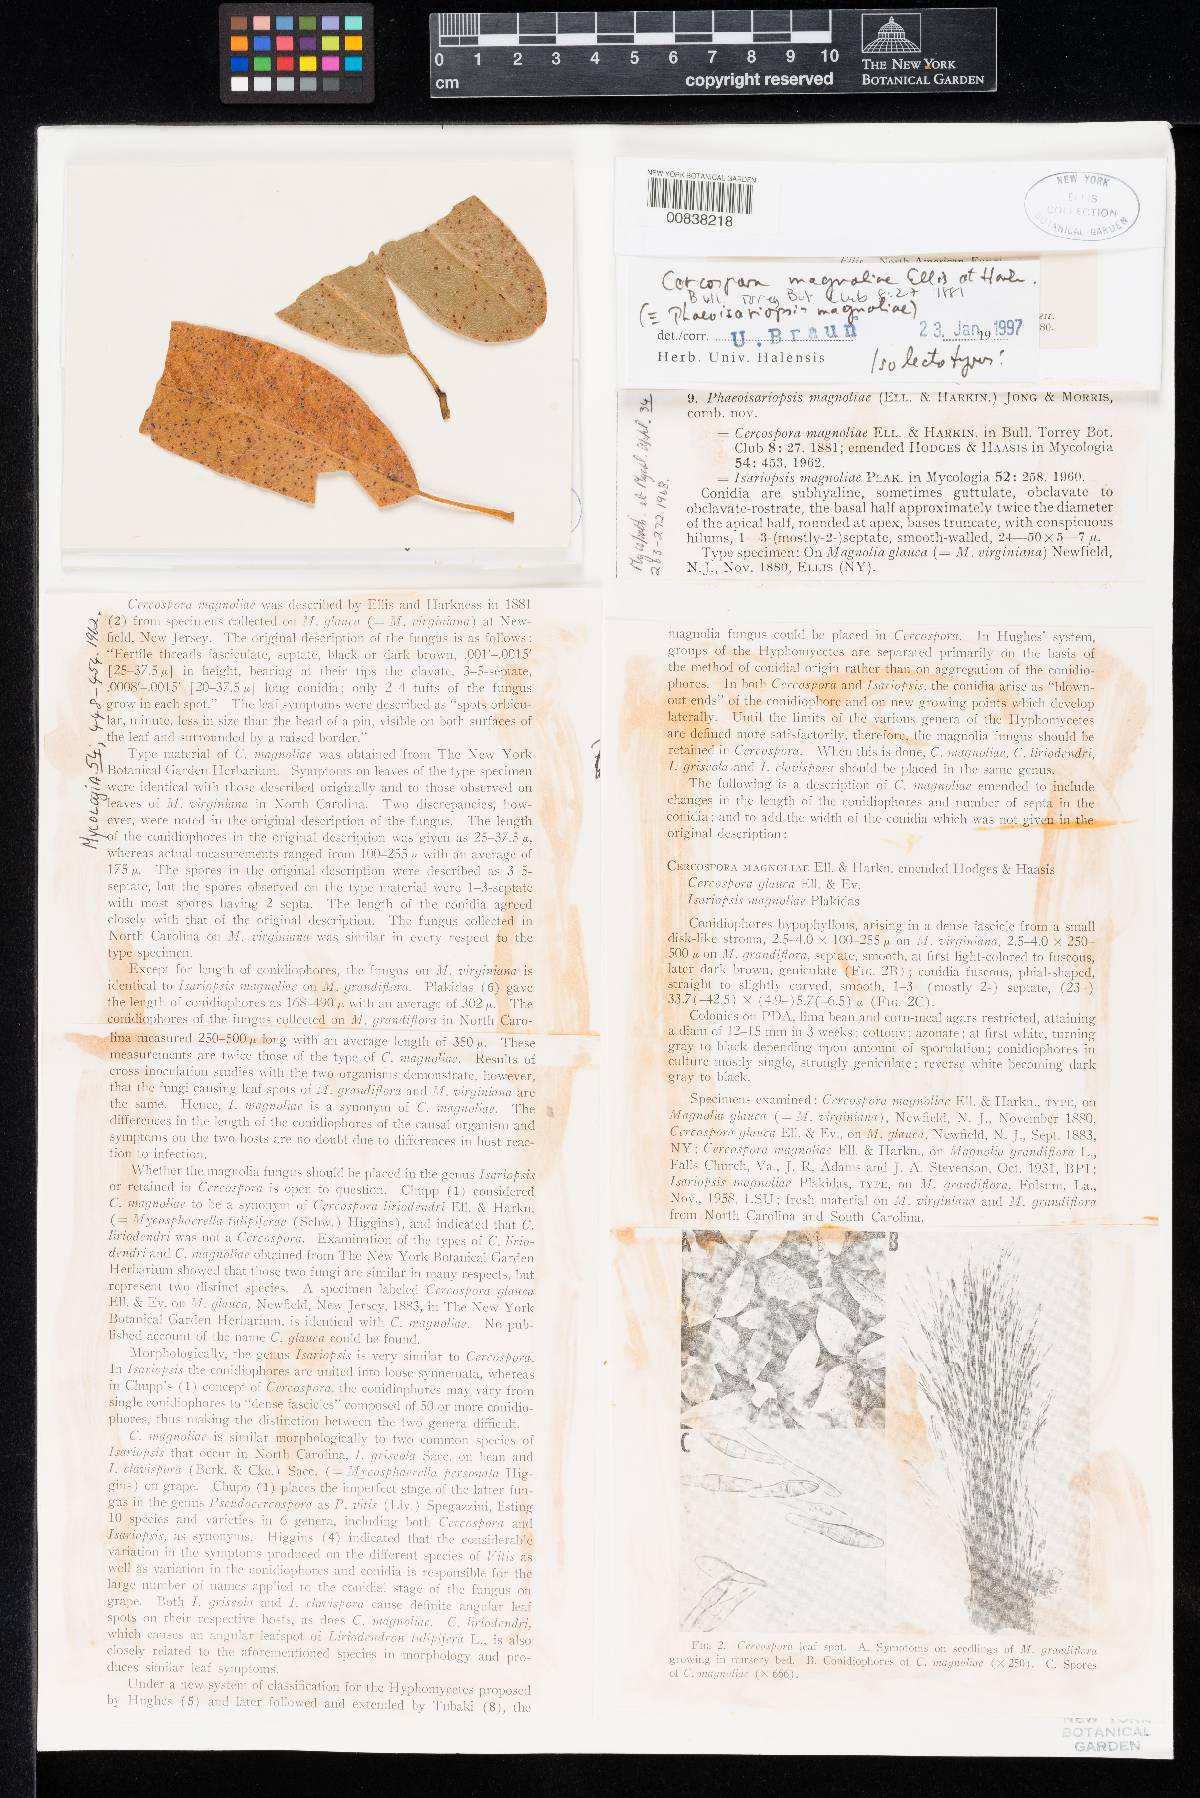 0 1 2 3 4 5 6 7 8 9 10
cm
copyright reserved
THE NEW YORK
BOTANICAL GARDEN
NEW YORK BOTANICAL GARDEN
00838218
NEW YORK
ELLIS
COLLECTION
BOTANICAL GARDEN
Ellis, North American Fungi
Cercospora magnoliae Ellis et Hark.
Bull. Torrey Bot. Club 8:27 1881
(≡ Phaeoisariopsis magnoliae)
det./corr. U. Braun 23. Jan. 19 1997
Herb. Univ. Halensis Isolectotypus!
80.
Mycopath. et Mycol. Appl. 34
263-272. 1968.
9. Phaeoisariopsis magnoliae (ELL. & HARKIN.) JONG & MORRIS,
comb. nov.
= Cercospora magnoliae ELL. & HARKIN. in Bull. Torrey Bot.
Club 8: 27. 1881; emended HODGES & HAASIS in Mycologia
54: 453. 1962.
= Isariopsis magnoliae PLAK. in Mycologia 52: 258. 1960.
Conidia are subhyaline, sometimes guttulate, obclavate to
obclavate-rostrate, the basal half approximately twice the diameter
of the apical half, rounded at apex, bases truncate, with conspicuous
hilums, 1—3-(mostly-2-)septate, smooth-walled, 24—50×5—7 μ.
Type specimen: On Magnolia glauca (= M. virginiana) Newfield,
N.J., Nov. 1880, ELLIS (NY).
Mycologia 54, 448-454. 1962.
Cercospora magnoliae was described by Ellis and Harkness in 1881
(2) from specimens collected on M. glauca (= M. virginiana) at New-
field, New Jersey. The original description of the fungus is as follows:
"Fertile threads fasciculate, septate, black or dark brown, .001′–.0015′
[25–37.5 μ] in height, bearing at their tips the clavate, 3–5-septate,
.0008′–.0015′ [20–37.5 μ] long conidia; only 2–4 tufts of the fungus
grow in each spot." The leaf symptoms were described as "spots orbicu-
lar, minute, less in size than the head of a pin, visible on both surfaces of
the leaf and surrounded by a raised border."
Type material of C. magnoliae was obtained from The New York
Botanical Garden Herbarium. Symptoms on leaves of the type specimen
were identical with those described originally and to those observed on
leaves of M. virginiana in North Carolina. Two discrepancies, how-
ever, were noted in the original description of the fungus. The length
of the conidiophores in the original description was given as 25–37.5 μ,
whereas actual measurements ranged from 100–255 μ with an average of
175 μ. The spores in the original description were described as 3–5-
septate, but the spores observed on the type material were 1–3-septate
with most spores having 2 septa. The length of the conidia agreed
closely with that of the original description. The fungus collected in
North Carolina on M. virginiana was similar in every respect to the
type specimen.
Except for length of conidiophores, the fungus on M. virginiana is
identical to Isariopsis magnoliae on M. grandiflora. Plakidas (6) gave
the length of conidiophores as 168–490 μ with an average of 302 μ. The
conidiophores of the fungus collected on M. grandiflora in North Caro-
lina measured 250–500 μ long with an average length of 350 μ. These
measurements are twice those of the type of C. magnoliae. Results of
cross inoculation studies with the two organisms demonstrate, however,
that the fungi causing leaf spots of M. grandiflora and M. virginiana are
the same. Hence, I. magnoliae is a synonym of C. magnoliae. The
differences in the length of the conidiophores of the causal organism and
symptoms on the two hosts are no doubt due to differences in host reac-
tion to infection.
Whether the magnolia fungus should be placed in the genus Isariopsis
or retained in Cercospora is open to question. Chupp (1) considered
C. magnoliae to be a synonym of Cercospora liriodendri Ell. & Harkn.
(= Mycosphaerella tulipiferae (Schw.) Higgins), and indicated that C.
liriodendri was not a Cercospora. Examination of the types of C. lirio-
dendri and C. magnoliae obtained from The New York Botanical Garden
Herbarium showed that those two fungi are similar in many respects, but
represent two distinct species. A specimen labeled Cercospora glauca
Ell. & Ev. on M. glauca, Newfield, New Jersey, 1883, in The New York
Botanical Garden Herbarium, is identical with C. magnoliae. No pub-
lished account of the name C. glauca could be found.
Morphologically, the genus Isariopsis is very similar to Cercospora.
In Isariopsis the conidiophores are united into loose synnemata, whereas
in Chupp's (1) concept of Cercospora, the conidiophores may vary from
single conidiophores to "dense fascicles" composed of 50 or more conidio-
phores, thus making the distinction between the two genera difficult.
C. magnoliae is similar morphologically to two common species of
Isariopsis that occur in North Carolina, I. griseola Sacc. on bean and
I. clavispora (Berk. & Cke.) Sacc. (= Mycosphaerella personata Hig-
gins) on grape. Chupp (1) places the imperfect stage of the latter fun-
gus in the genus Pseudocercospora as P. vitis (Liv.) Spegazzini, listing
10 species and varieties in 6 genera, including both Cercospora and
Isariopsis, as synonyms. Higgins (4) indicated that the considerable
variation in the symptoms produced on the different species of Vitis as
well as variation in the conidiophores and conidia is responsible for the
large number of names applied to the conidial stage of the fungus on
grape. Both I. griseola and I. clavispora cause definite angular leaf
spots on their respective hosts, as does C. magnoliae. C. liriodendri,
which causes an angular leafspot of Liriodendron tulipifera L., is also
closely related to the aforementioned species in morphology and pro-
duces similar leaf symptoms.
Under a new system of classification for the Hyphomycetes proposed
by Hughes (5) and later followed and extended by Tubaki (8), the
magnolia fungus could be placed in Cercospora. In Hughes' system,
groups of the Hyphomycetes are separated primarily on the basis of
the method of conidial origin rather than on aggregation of the conidio-
phores. In both Cercospora and Isariopsis, the conidia arise as "blown-
out ends" of the conidiophore and on new growing points which develop
laterally. Until the limits of the various genera of the Hyphomycetes
are defined more satisfactorily, therefore, the magnolia fungus should be
retained in Cercospora. When this is done, C. magnoliae, C. liriodendri,
I. griseola and I. clavispora should be placed in the same genus.
The following is a description of C. magnoliae emended to include
changes in the length of the conidiophores and number of septa in the
conidia; and to add the width of the conidia which was not given in the
original description:
CERCOSPORA MAGNOLIAE Ell. & Harkn. emended Hodges & Haasis
Cercospora glauca Ell. & Ev.
Isariopsis magnoliae Plakidas
Conidiophores hypophyllous, arising in a dense fascicle from a small
disk-like stroma, 2.5–4.0 × 100–255 μ on M. virginiana, 2.5–4.0 × 250–
500 μ on M. grandiflora, septate, smooth, at first light-colored to fuscous,
later dark brown, geniculate (FIG. 2B); conidia fuscous, phial-shaped,
straight to slightly curved, smooth, 1–3 (mostly 2-) septate, (23–)
33.7(–42.5) × (4.9–)5.7(–6.5) μ (FIG. 2C).
Colonies on PDA, lima bean and corn-meal agars restricted, attaining
a diam of 12–15 mm in 3 weeks; cottony; azonate; at first white, turning
gray to black depending upon amount of sporulation; conidiophores in
culture mostly single, strongly geniculate; reverse white becoming dark
gray to black.
Specimens examined: Cercospora magnoliae Ell. & Harkn., TYPE, on
Magnolia glauca (= M. virginiana), Newfield, N. J., November 1880,
Cercospora glauca Ell. & Ev., on M. glauca, Newfield, N. J., Sept. 1883,
NY; Cercospora magnoliae Ell. & Harkn., on Magnolia grandiflora L.,
Falls Church, Va., J. R. Adams and J. A. Stevenson, Oct. 1931, BPI;
Isariopsis magnoliae Plakidas, TYPE, on M. grandiflora, Folsom, La.,
Nov., 1958, LSU; fresh material on M. virginiana and M. grandiflora
from North Carolina and South Carolina.
A
B
C
FIG. 2. Cercospora leaf spot. A. Symptoms on seedlings of M. grandiflora
growing in nursery bed. B. Conidiophores of C. magnoliae (× 250). C. Spores
of C. magnoliae (× 666).
NEW YORK
BOTANICAL
GARDEN